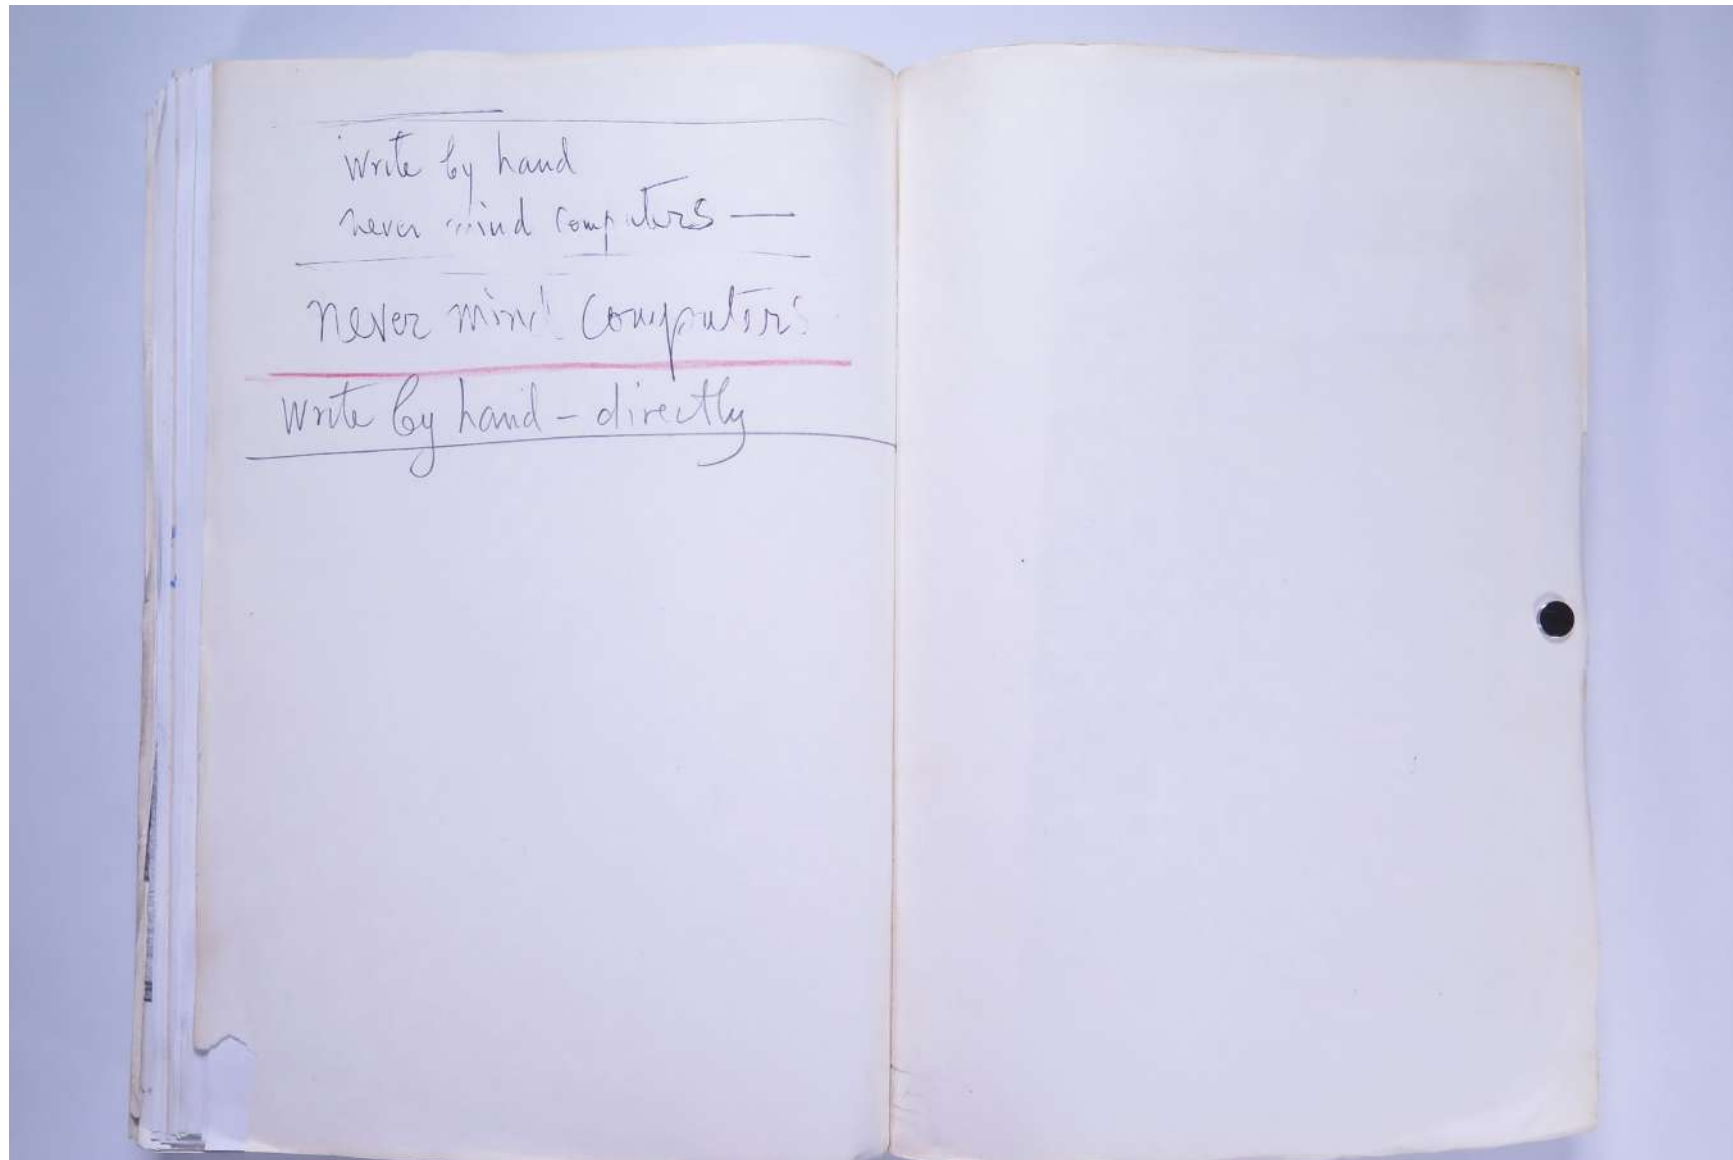 write by hand
never mind computers —
never mind computers
write by hand – directly